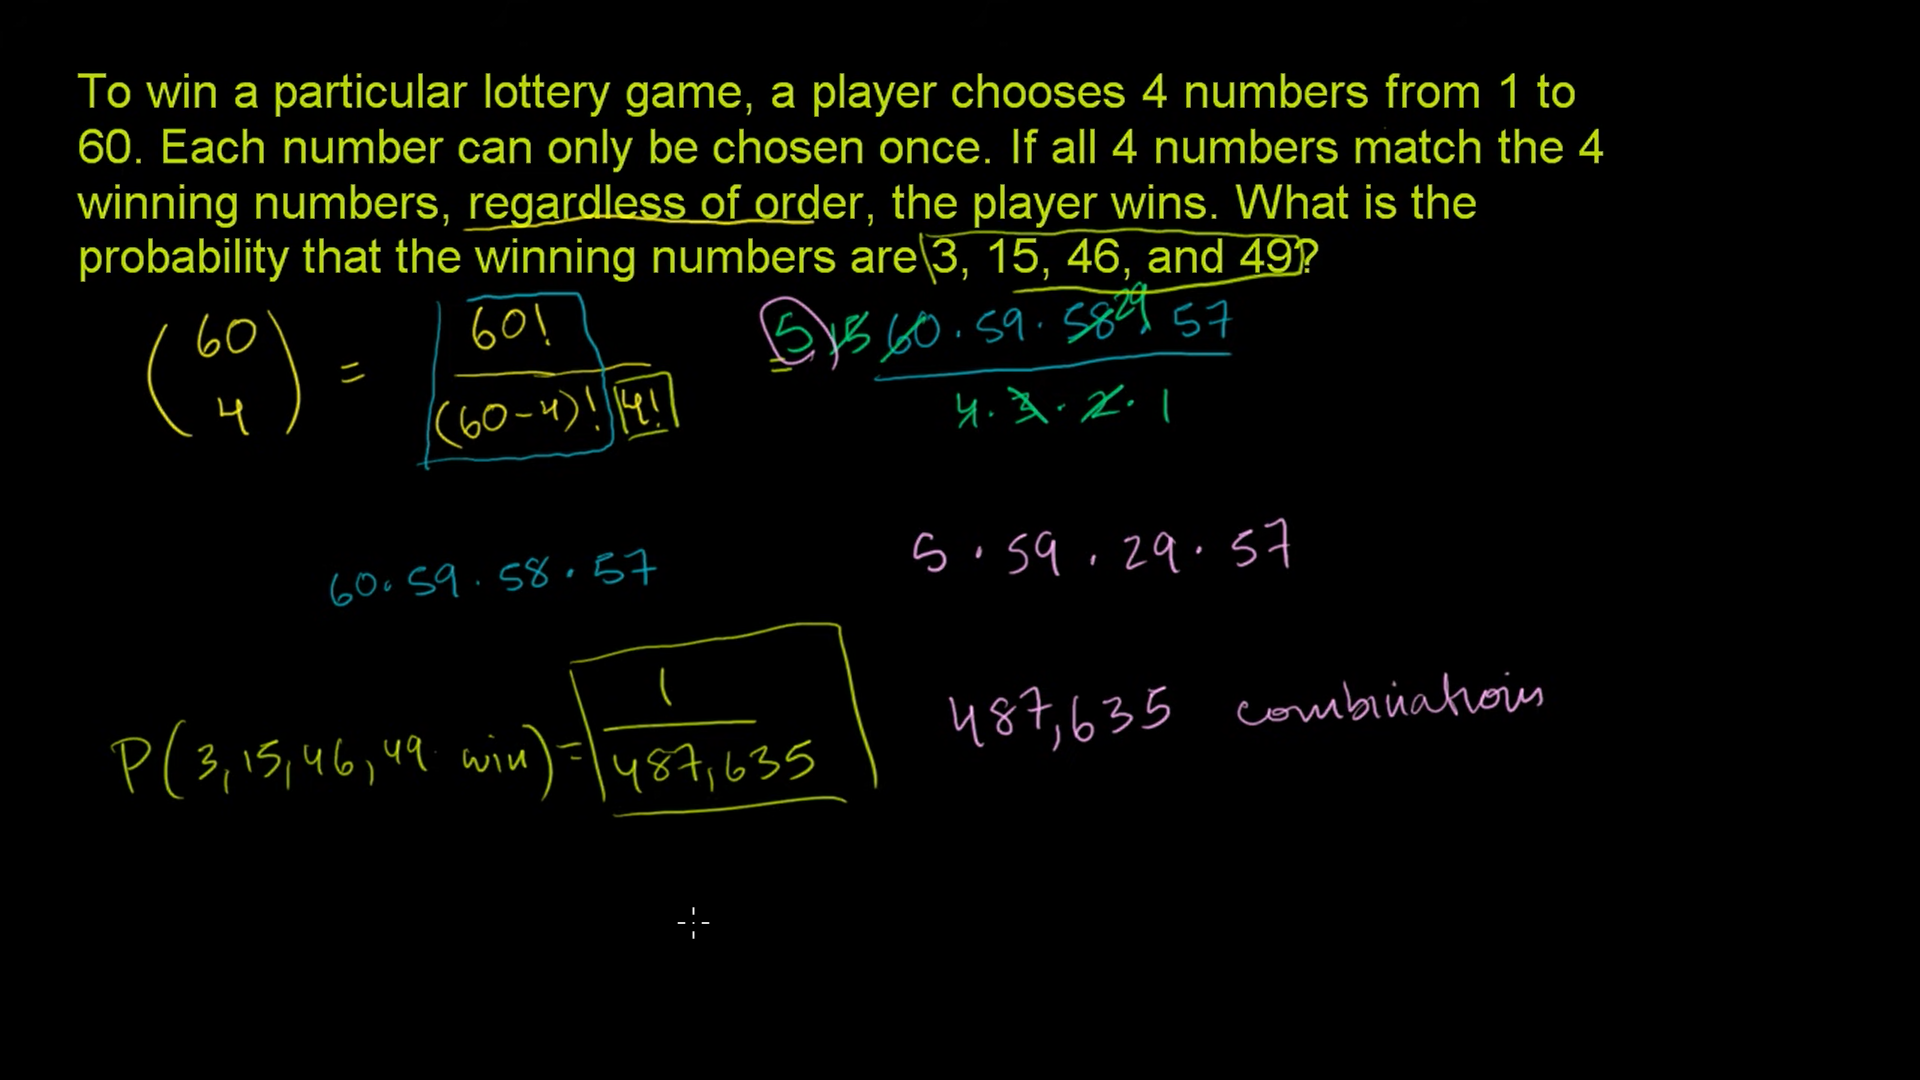 To win a particular lottery game, a player chooses 4 numbers from 1 to
60. Each number can only be chosen once. If all 4 numbers match the 4
winning numbers, regardless of order, the player wins. What is the
probability that the winning numbers are 3, 15, 46, and 49?
(60 4) = 60! / (60-4)! 4!
5 15 60 · 59 · 58 29 · 57
4 · 3 · 2 · 1
60 · 59 · 58 · 57
5 · 59 · 29 · 57
P(3, 15, 46, 49 win) = 1 / 487,635
487,635 combinations